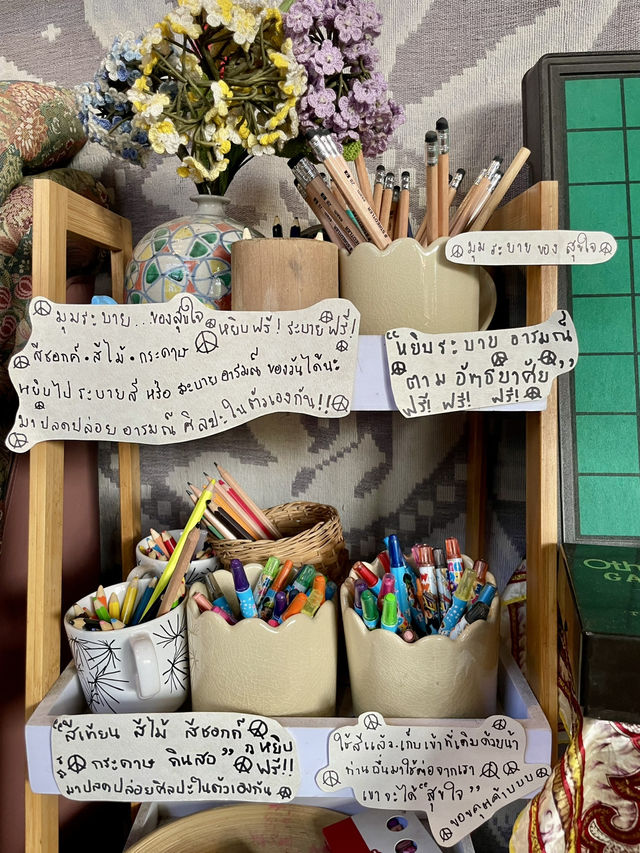 มุม ระบาย ของ สุขใจ
มุมระบาย...ของสุขใจ หยิบฟรี! ระบายฟรี!
สีชอกค์ • สีไม้ • กระดาษ
หยิบไป ระบายสี หรือ ระบายอารมณ์ ของวันได้นะ
มาปลดปล่อย อารมณ์ ศิลปะในตัวเองกัน!!
"หยิบระบาย อารมณ์
ตาม อัทธยาศัย"
ฟรี! ฟรี! ฟรี!
"สีเทียน สีไม้ สีชอกค์
กระดาษ ดินสอ" หยิบ
ฟรี!!
มาปลดปล่อยศิลปะในตัวเองกัน
ใช้สีแล้ว..เก็บเข้าที่เดิมด้วยน้า
ท่านอื่นมาใช้ต่อจากเรา
เขาจะได้ "สุขใจ"
ขอบคุณค้าบบบ